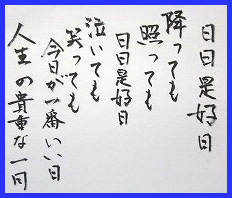 日日是好日
降っても
照っても
日日是好日
泣いても
笑っても
今日が一番いい日
人生の貴重な一日